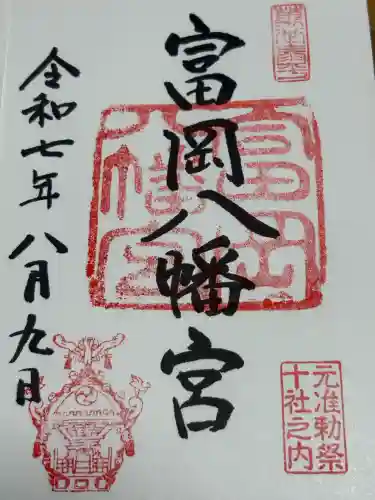 富岡八幡宮
令和七年八月九日
富岡八幡宮
元准勅祭
十社之内